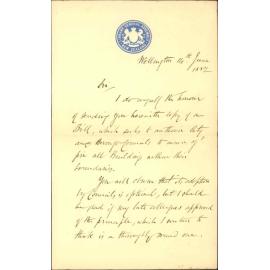 Wellington 10th June
1887
Sir,
I do myself the honour
of sending you herewith copy of a
Bill, which seeks to authorise City
and Borough Councils to
all Buildings within their
boundaries.
You will observe that its adoption
by Councils is optional, but I should
be glad if my late colleagues approved
of the principle, which I venture to
think is a thoroughly sound one.